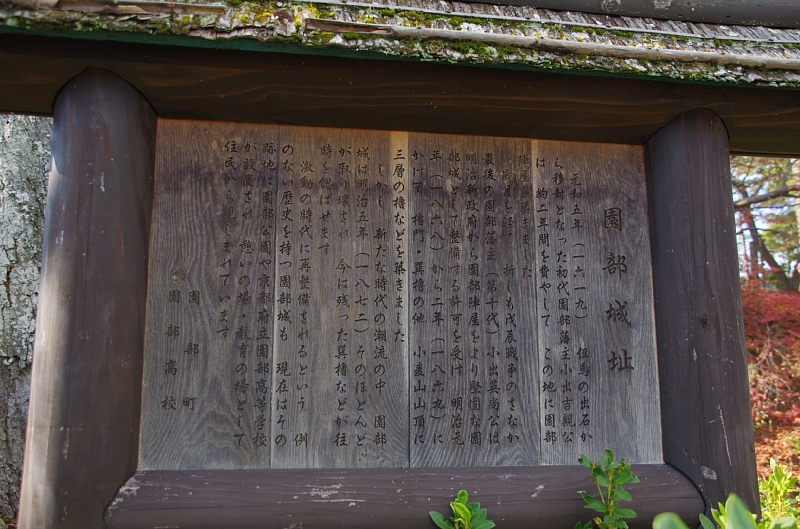 園部城址
元和五年(一六一九) 但馬の出石か
ら移封となった初代園部藩主小出吉親公
は 約二年間を費やして この地に園部
陣屋を築きました
歳月を経て 折しも戊辰戦争のさなか
最後の園部藩主(第十代)小出英尚公は
明治新政府から園部陣屋をより堅固な園
部城として整備する許可を受け 明治元
年(一八六八)から二年(一八六九)に
かけて 櫓門・巽櫓の他 小麦山山頂に
三層の櫓などを築きました
しかし 新たな時代の潮流の中 園部
城は明治五年(一八七二)そのほとんど
が取り壊され 今は残った巽櫓などが往
時を偲ばせます
激動の時代に再整備されるという 例
のない歴史を持つ園部城も 現在はその
跡地に園部公園や京都府立園部高等学校
が設置され 憩いの場・教育の場として
住民から親しまれています
園部町
園部高校